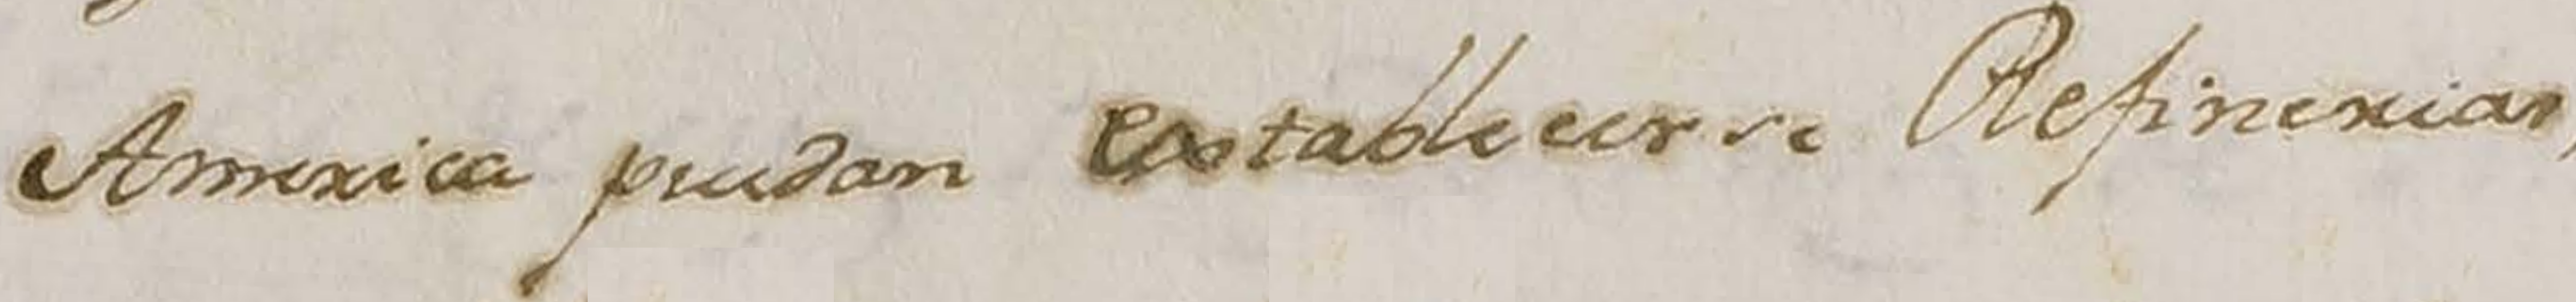 America puedan establecerse Refinerias,